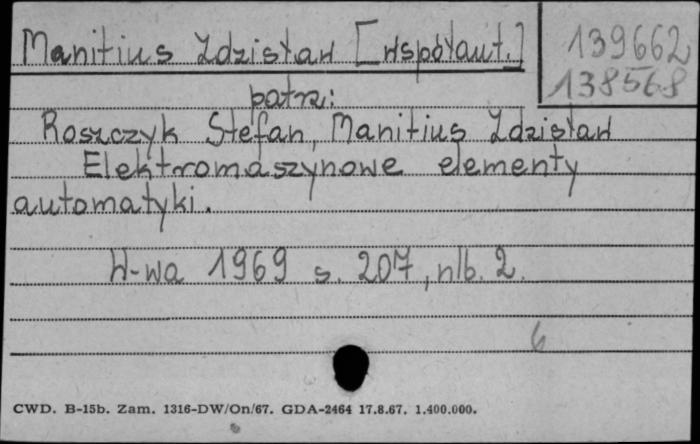 Manitius Zdzisław [współaut.]
139662
138568
patrz:
Roszczyk Stefan, Manitius Zdzisław
Elektromaszynowe elementy
automatyki.
W-wa 1969 s. 207, nlb. 2.
6
CWD. B-15b. Zam. 1316-DW/On/67. GDA-2464 17.8.67. 1.400.000.